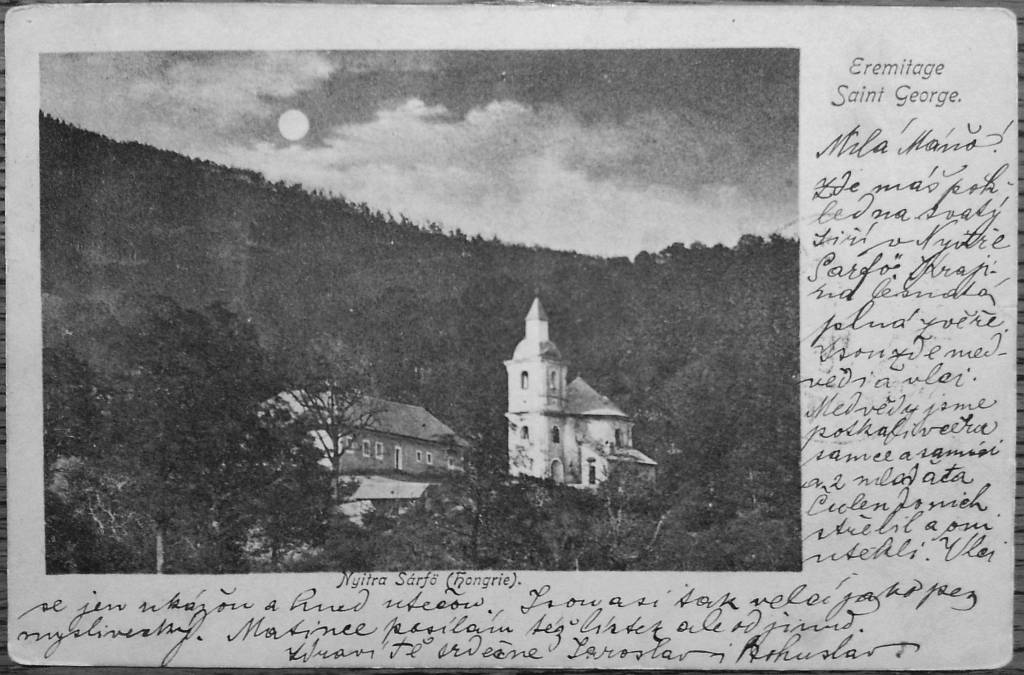 Eremitage
Saint George.
Milá Máňo!
zde máš poh-
led na svatý
Jiří v Nyitře
Sarfö. Kraji-
na lesnatá
plná zvěře.
Jsou zde med-
vědi a vlci.
Medvědy jsme
potkali včera
samce a samici
a 2 mláďata
Culen do nich
střelil a oni
utekli. Vlci
Nyitra Sárfö (Hongrie).
se jen ukážou a hned utečou. Jsou asi tak velcí jako pes
myslivecký. Matince posílám též lístek ale odjinud.
Zdraví Tě srdečně Jaroslav i Bohuslav